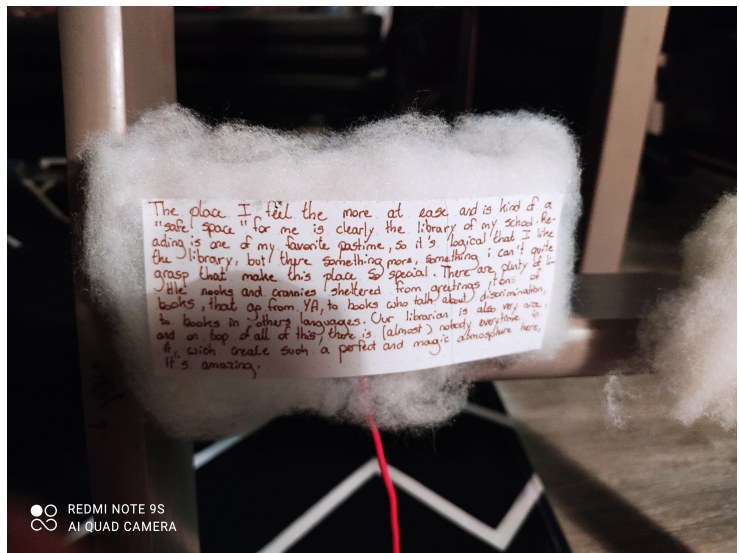 The place I feel the more at ease and is kind of a
"safe space" for me is clearly the library of my school. Re-
ading is one of my favorite pastime, so it's logical that I like
the library, but there something more, something i can't quite
grasp that make this place so special. There are plenty of li-
ttle nooks and crannies sheltered from greetings, tons of
books, that go from YA, to books who talk about discrimination,
to books in others languages. Our librarian is also very nice,
and on top of all of this, there is (almost) nobody everytime in
it, wich create such a perfect and magic atmosphere here,
it's amazing.
REDMI NOTE 9S
AI QUAD CAMERA